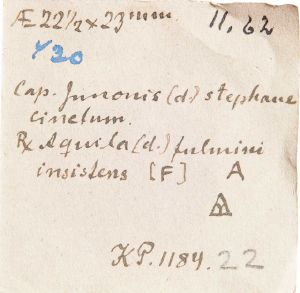 Æ 22½ x 23 mm 11.62
Y20
Cap. Junonis (d.) stephane
cinctum.
℞ Aquila (d.) fulmini
insistens [F] A
KP. 1184. 22